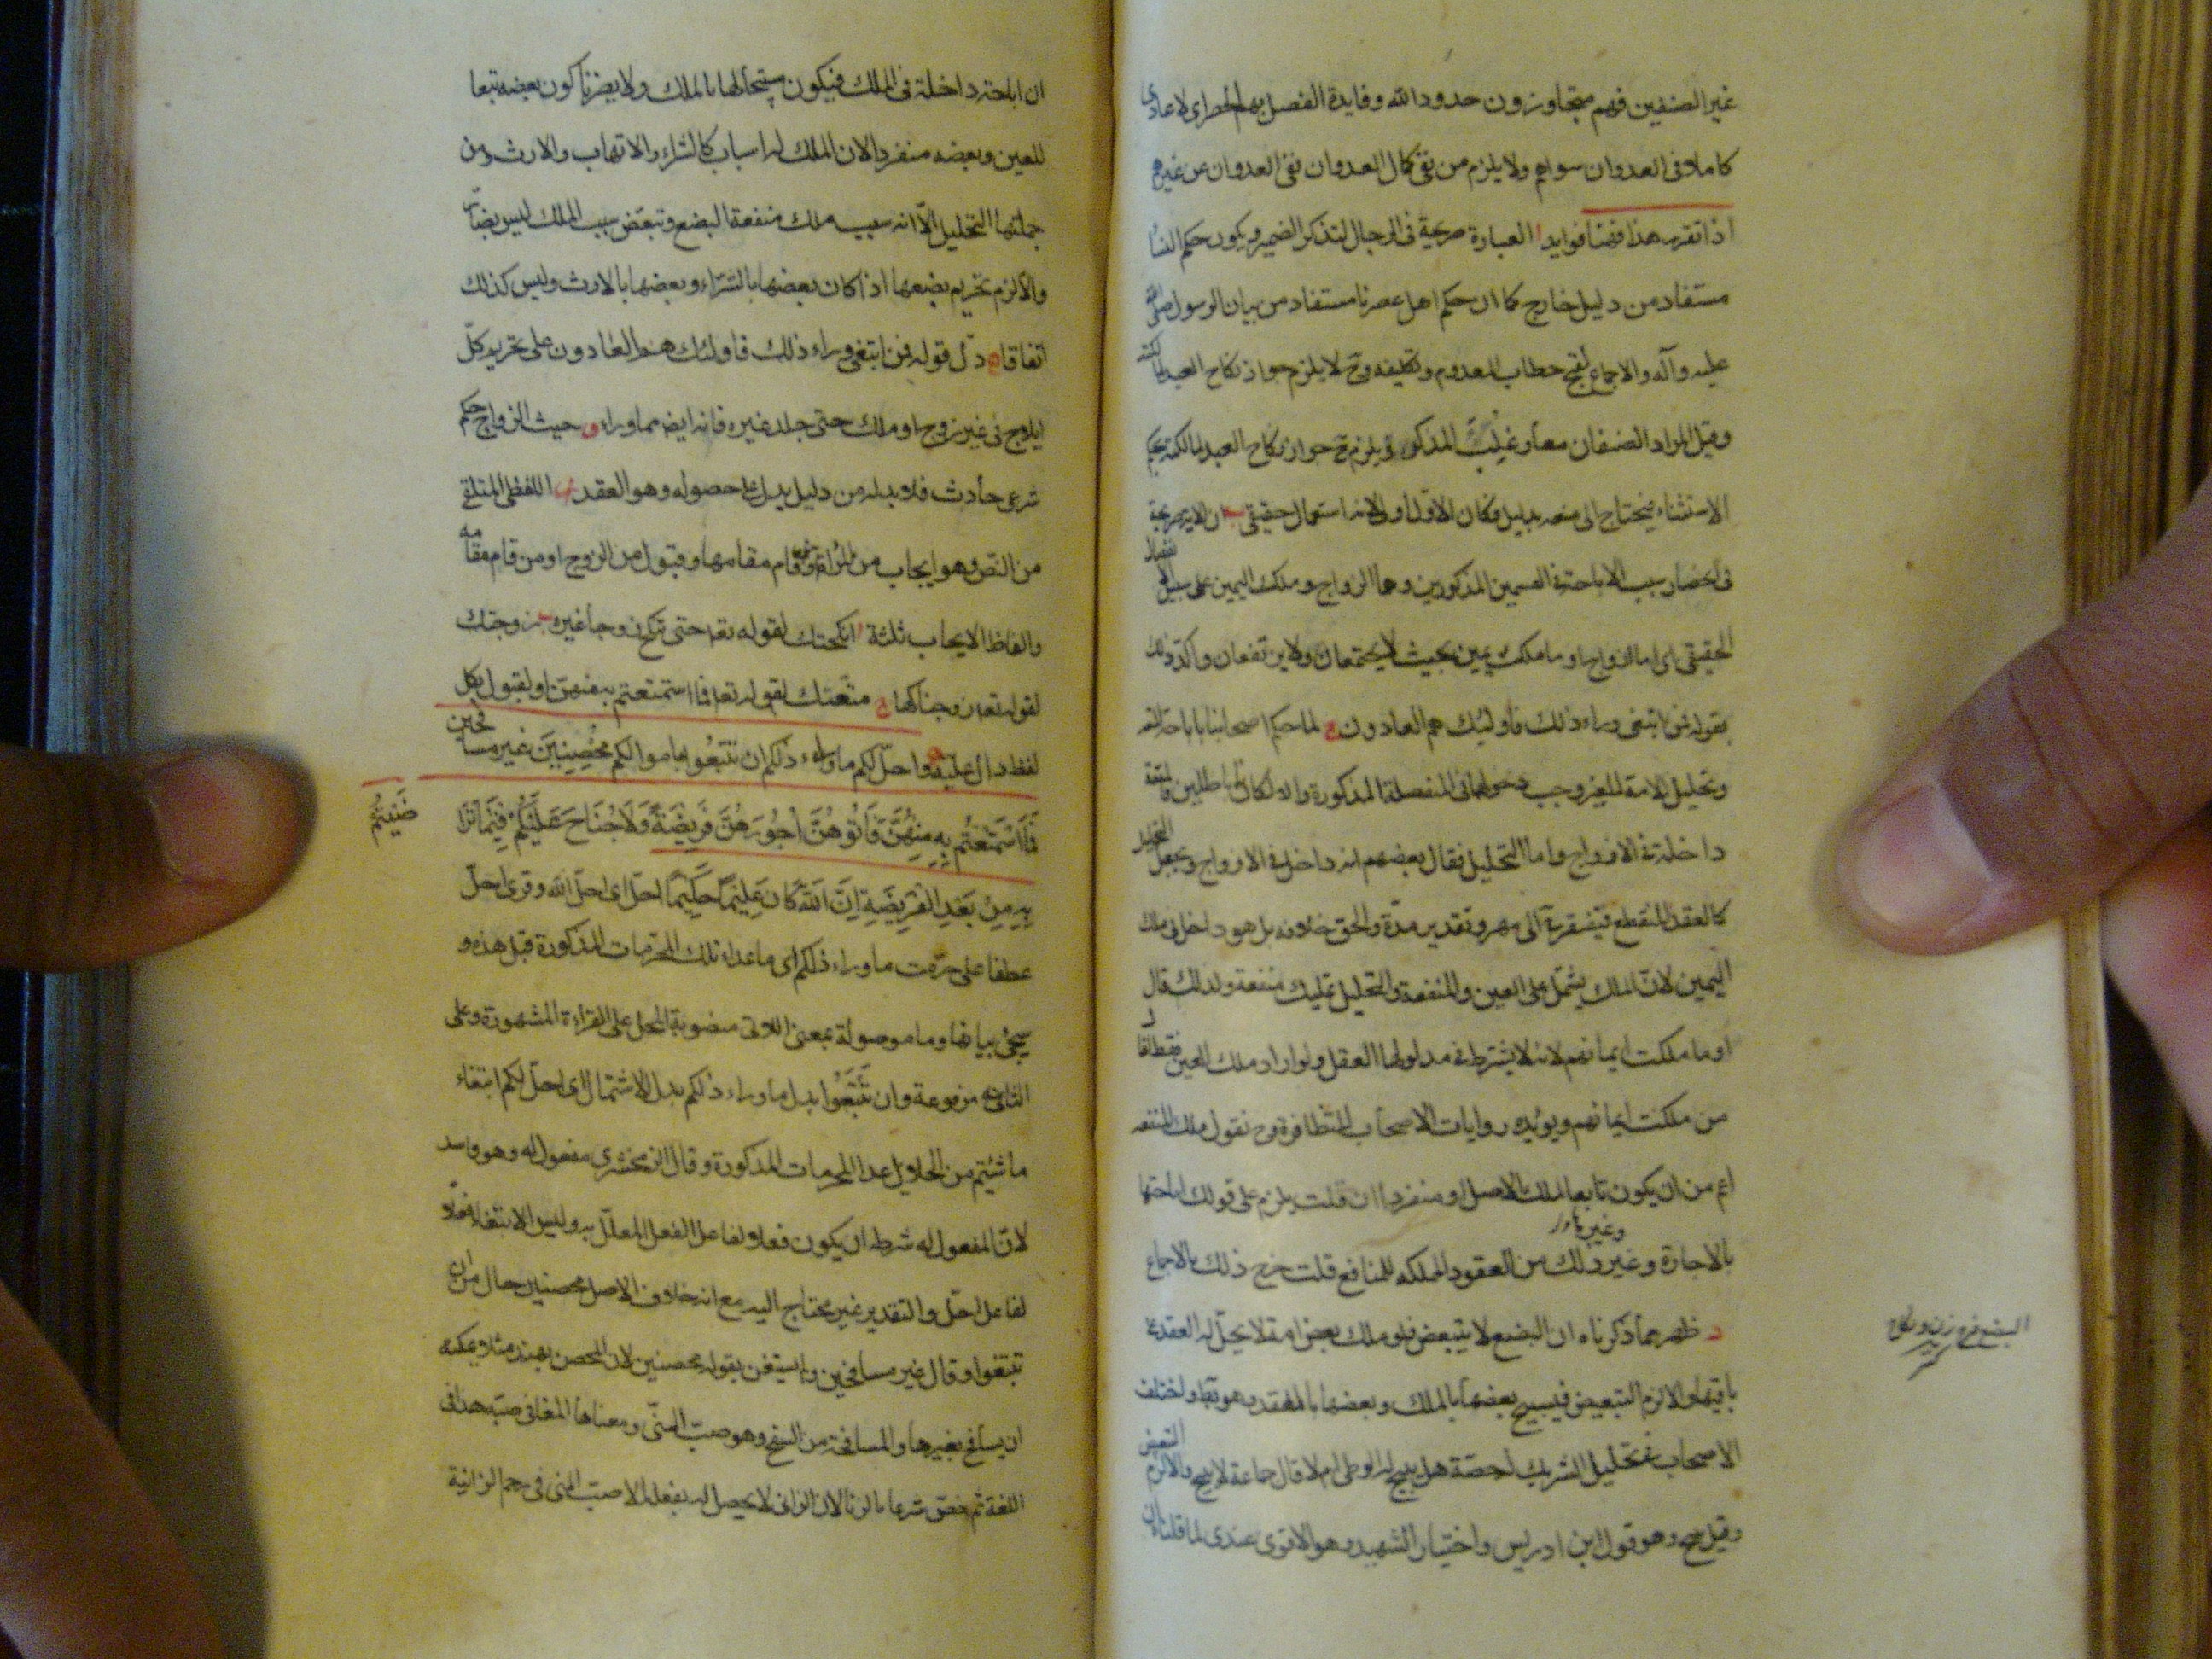 غير الصنفين فهم متجاوزون حدود الله وفايدة الفصل بهم الحصر اى لا عادى
كاملا فى العدوان سواهم ولا يلزم من نفى كمال العدوان نفى العدوان عن غيرهم
اذا تقرر هذا فهنا فوايد ا العبارة صريحة فى الرجال لتذكر الضمير ويكون حكم النسا
مستفاد من دليل خارج كما ان حكم اهل عصرنا مستفاد من بيان الرسول صلى الله
عليه وآله والاجماع لقبح خطاب المعدوم وتكليفه وح لا يلزم جواز نكاح العبد لمالكته
وقيل المراد الصنفان معا وغلب المذكور ويلزم ح جواز نكاح العبد لمالكته بحكم
الاستثناء فيحتاج الى منعه بدليل فكان الاول اولى لانه استعمال حقيقى ب ان الاية صريحة
فى انحصار سبب الاباحة فى القسمين المذكورين وهما الزواج وملك اليمين على سبيل الانفصال
الحقيقى اى اما الزواج او ما ملكت يمين بحيث لا يجتمعان ولا يرتفعان واكد ذلك
بقوله فمن ابتغى وراء ذلك فاولئك هم العادون ج لما حكم اصحابنا باباحة المتعة
وتحليل الامة للغير وجب دخولهما فى المنفصلة المذكورة والا لكانا باطلين فالمتعة
داخلة فى الازواج واما التحليل فقال بعضهم انه داخل فى الازواج ويجعل التحليل
كالعقد المنقطع فيفتقر الى مهر وتقدير مدة والحق خلافه بل هو داخل فى ملك
اليمين لان الملك يشتمل على العين والمنفعة والتحليل تمليك منفعة ولذلك قال
او ما ملكت ايمانهم لانه لا يشترط فى مدلولها العقل ولو اراد ملك العين فقط لقال
من ملكت ايمانهم ويؤيده روايات الاصحاب المتظافرة وح نقول ملك المنفعة
اعم من ان يكون تابعا لملك الاصل او منفردا ان قلت يلزم على قولك اباحتها
بالاجارة وغير ذلك من العقود المملكة للمنافع قلت خرج ذلك بالاجماع
د ظهر مما ذكرناه ان البضع لا يتبعض فلو ملك بعض امة لا يحل له العقد على
باقيها والا لزم التبعيض فيبيح بعضها بالملك وبعضها بالعقد وهو بط واختلف
الاصحاب فى تحليل الشريك لحصته هل يبيح له الوطى ام لا قال جماعة لا يبيح والا لزم التبعيض
وقيل يبيح وهو قول ابن ادريس واختيار الشهيد وهو الاقوى عندى لما قلناه من
ان اباحته داخلة فى الملك فيكون مستبيحا لها بالملك ولا يضرنا كون بعضه تبعا
للعين وبعضه منفردا لان الملك له اسباب كالشراء والاتهاب والارث ومن
جملتها التحليل الا انه سبب ملك منفعة البضع وتبعض سبب الملك ليس بضائر
والا لزم تحريم بضعها اذا كان بعضها بالشراء وبعضها بالارث وليس كذلك
اتفاقا ه دل قوله فمن ابتغى وراء ذلك فاولئك هم العادون على تحريم كل
ايلاج فى غير زوج او ملك حتى جلد عميره فانه ايضا مما وراء و حيث الزواج حكم
شرعى حادث فلابد له من دليل يدل على حصوله وهو العقد اللفظى المتلقى
من النص وهو ايجاب من المراة ومن قام مقامها وقبول من الزوج او من قام مقامه
والفاظ الايجاب ثلثة ا انكحتك لقوله تعا حتى تنكح زوجا غيره ب زوجتك
لقوله تعا زوجناكها ج متعتك لقوله تعا فما استمتعتم به منهن والقبول بكل
لفظ دال عليه واحل لكم ما وراء ذلكم ان تبتغوا باموالكم محصنين غير مسافحين
فَمَا اسْتَمْتَعْتُم بِهِ مِنْهُنَّ فَآتُوهُنَّ أُجُورَهُنَّ فَرِيضَةً وَلَا جُنَاحَ عَلَيْكُمْ فِيمَا تَرَا
ضَيْتُمْ
بِهِ مِنْ بَعْدِ الْفَرِيضَةِ اِنَّ اللَّهَ كَانَ عَلِيمًا حَكِيمًا احل اى احل الله وقرئ احل
عطفا على حرمت ما وراء ذلكم اى ما عدا تلك المحرمات المذكورة قبل هذه و
سيجئ بيانها وما موصولة بمعنى اللاتى منصوبة المحل على القراءة المشهورة وعلى
الثانية مرفوعة وان تبتغوا بدل ما وراء ذلكم بدل الاشتمال اى احل لكم ابتغاء
ما شئتم من الحلايل عدا المحرمات المذكورة وقال الزمخشرى مفعول له وهو فاسد
لان المفعول له شرطه ان يكون فعلا لفاعل الفعل المعلل به وليس الابتغاء فعلا
لفاعل احل والتقدير غير محتاج اليه مع انه خلاف الاصل محصنين حال من ان
تبتغوا وقال غير مسافحين ولم يستغن بقوله محصنين لان المحصن بهند مثلا يمكنه
ان يسافح بغيرها والمسافحة من السفح وهو صب المنى ومعناها المغافى صبه هذا فى
اللغة ثم خص شرعا بالزنا لان الزانى لا يحصل له بفعله الا صب المنى فى رحم الزانية